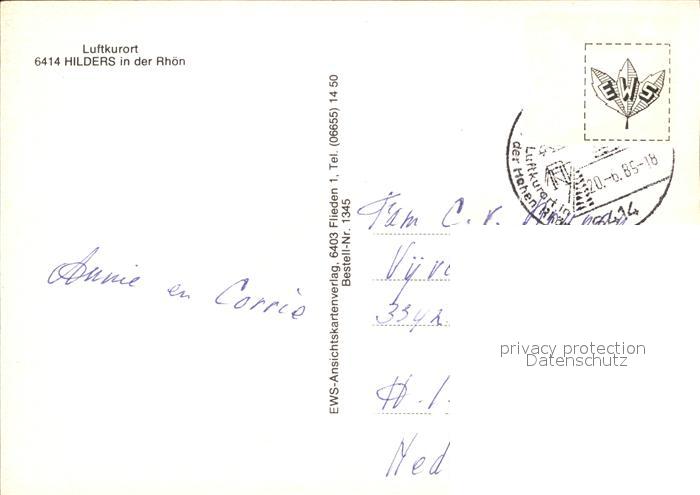 Luftkurort
6414 HILDERS in der Rhön
Annie en Corrie
EWS-Ansichtskartenverlag, 6403 Flieden 1, Tel. (06655) 14 50
Bestell-Nr. 1345
EWS
Luftkurort in
der Hohen
20.-6.85-18
6414
Fam C. v.
334
H.I.
Ned
privacy protection
Datenschutz